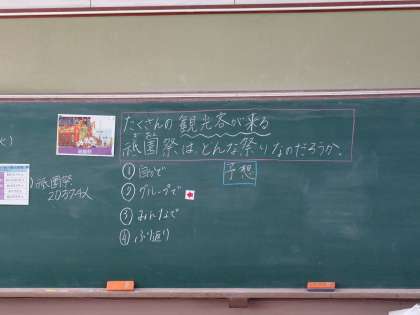 たくさんの観光客が来る
祇園祭は、どんな祭りなのだろうか。
① 自分で
② グループで
③ みんなで
④ ふり返り
予想
祇園祭